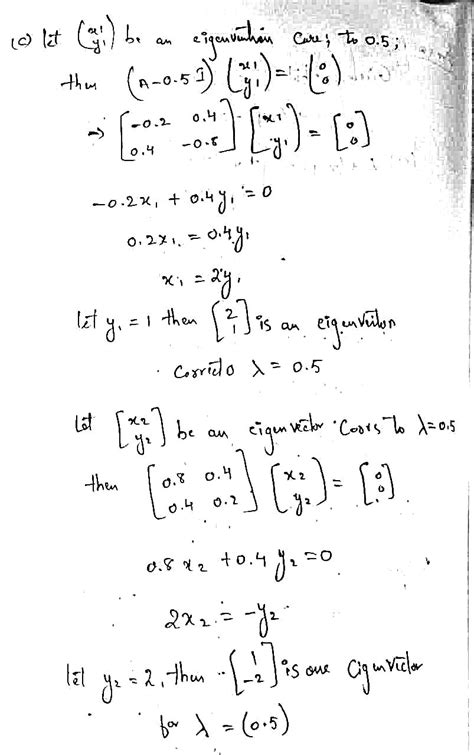 (c) let (x1 y1) be an eigenvector Corrs to 0.5;
then (A-0.5I) (x1 y1) = (0 0)
→ [-0.2 0.4 0.4 -0.8] [x1 y1] = [0 0]
-0.2x1 + 0.4y1 = 0
0.2x1 = 0.4y1
x1 = 2y1
let y1 = 1 then [2 1] is an eigenvector
Corres to λ = 0.5
Let [x2 y2] be an eigenvector Coors to λ=0.5
then [0.8 0.4 0.4 0.2] [x2 y2] = [0 0]
0.8 x2 + 0.4 y2 = 0
2x2 = -y2
let y2 = 2, then [1 -2] is one Eigenvector
for λ = (0.5)